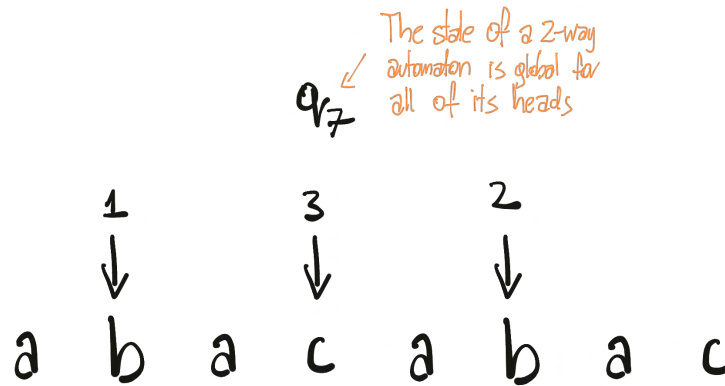 The state of a 2-way
automaton is global for
all of its heads
q7
1 3 2
a b a c a b a c